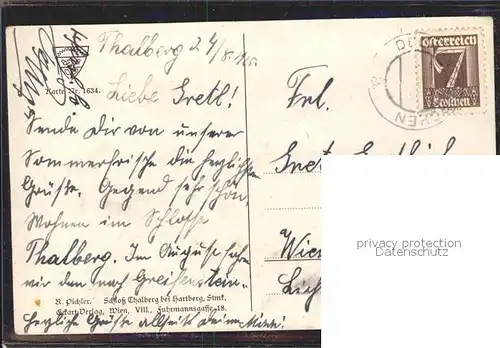 Thalberg 24/8. 1925
Karte Nr. 1634.
Liebe Gretl!
Sende Dir von unserer
Sommerfrische die herzlichsten
Grüße. Gegend sehr schön.
Wohnen im Schlosse
Thalberg. Im August fahren
wir dann nach Greifenstein.
R. Pichler. Schloß Thalberg bei Hartberg, Stmk.
Eckart-Verlag, Wien, VIII., Fuhrmannsgasse 18.
Herzliche Grüße allseits Deine Mitzi.
Österreich
7
Groschen
Frl.
Wien
privacy protection
Datenschutz